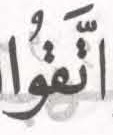 اتَّقُوا